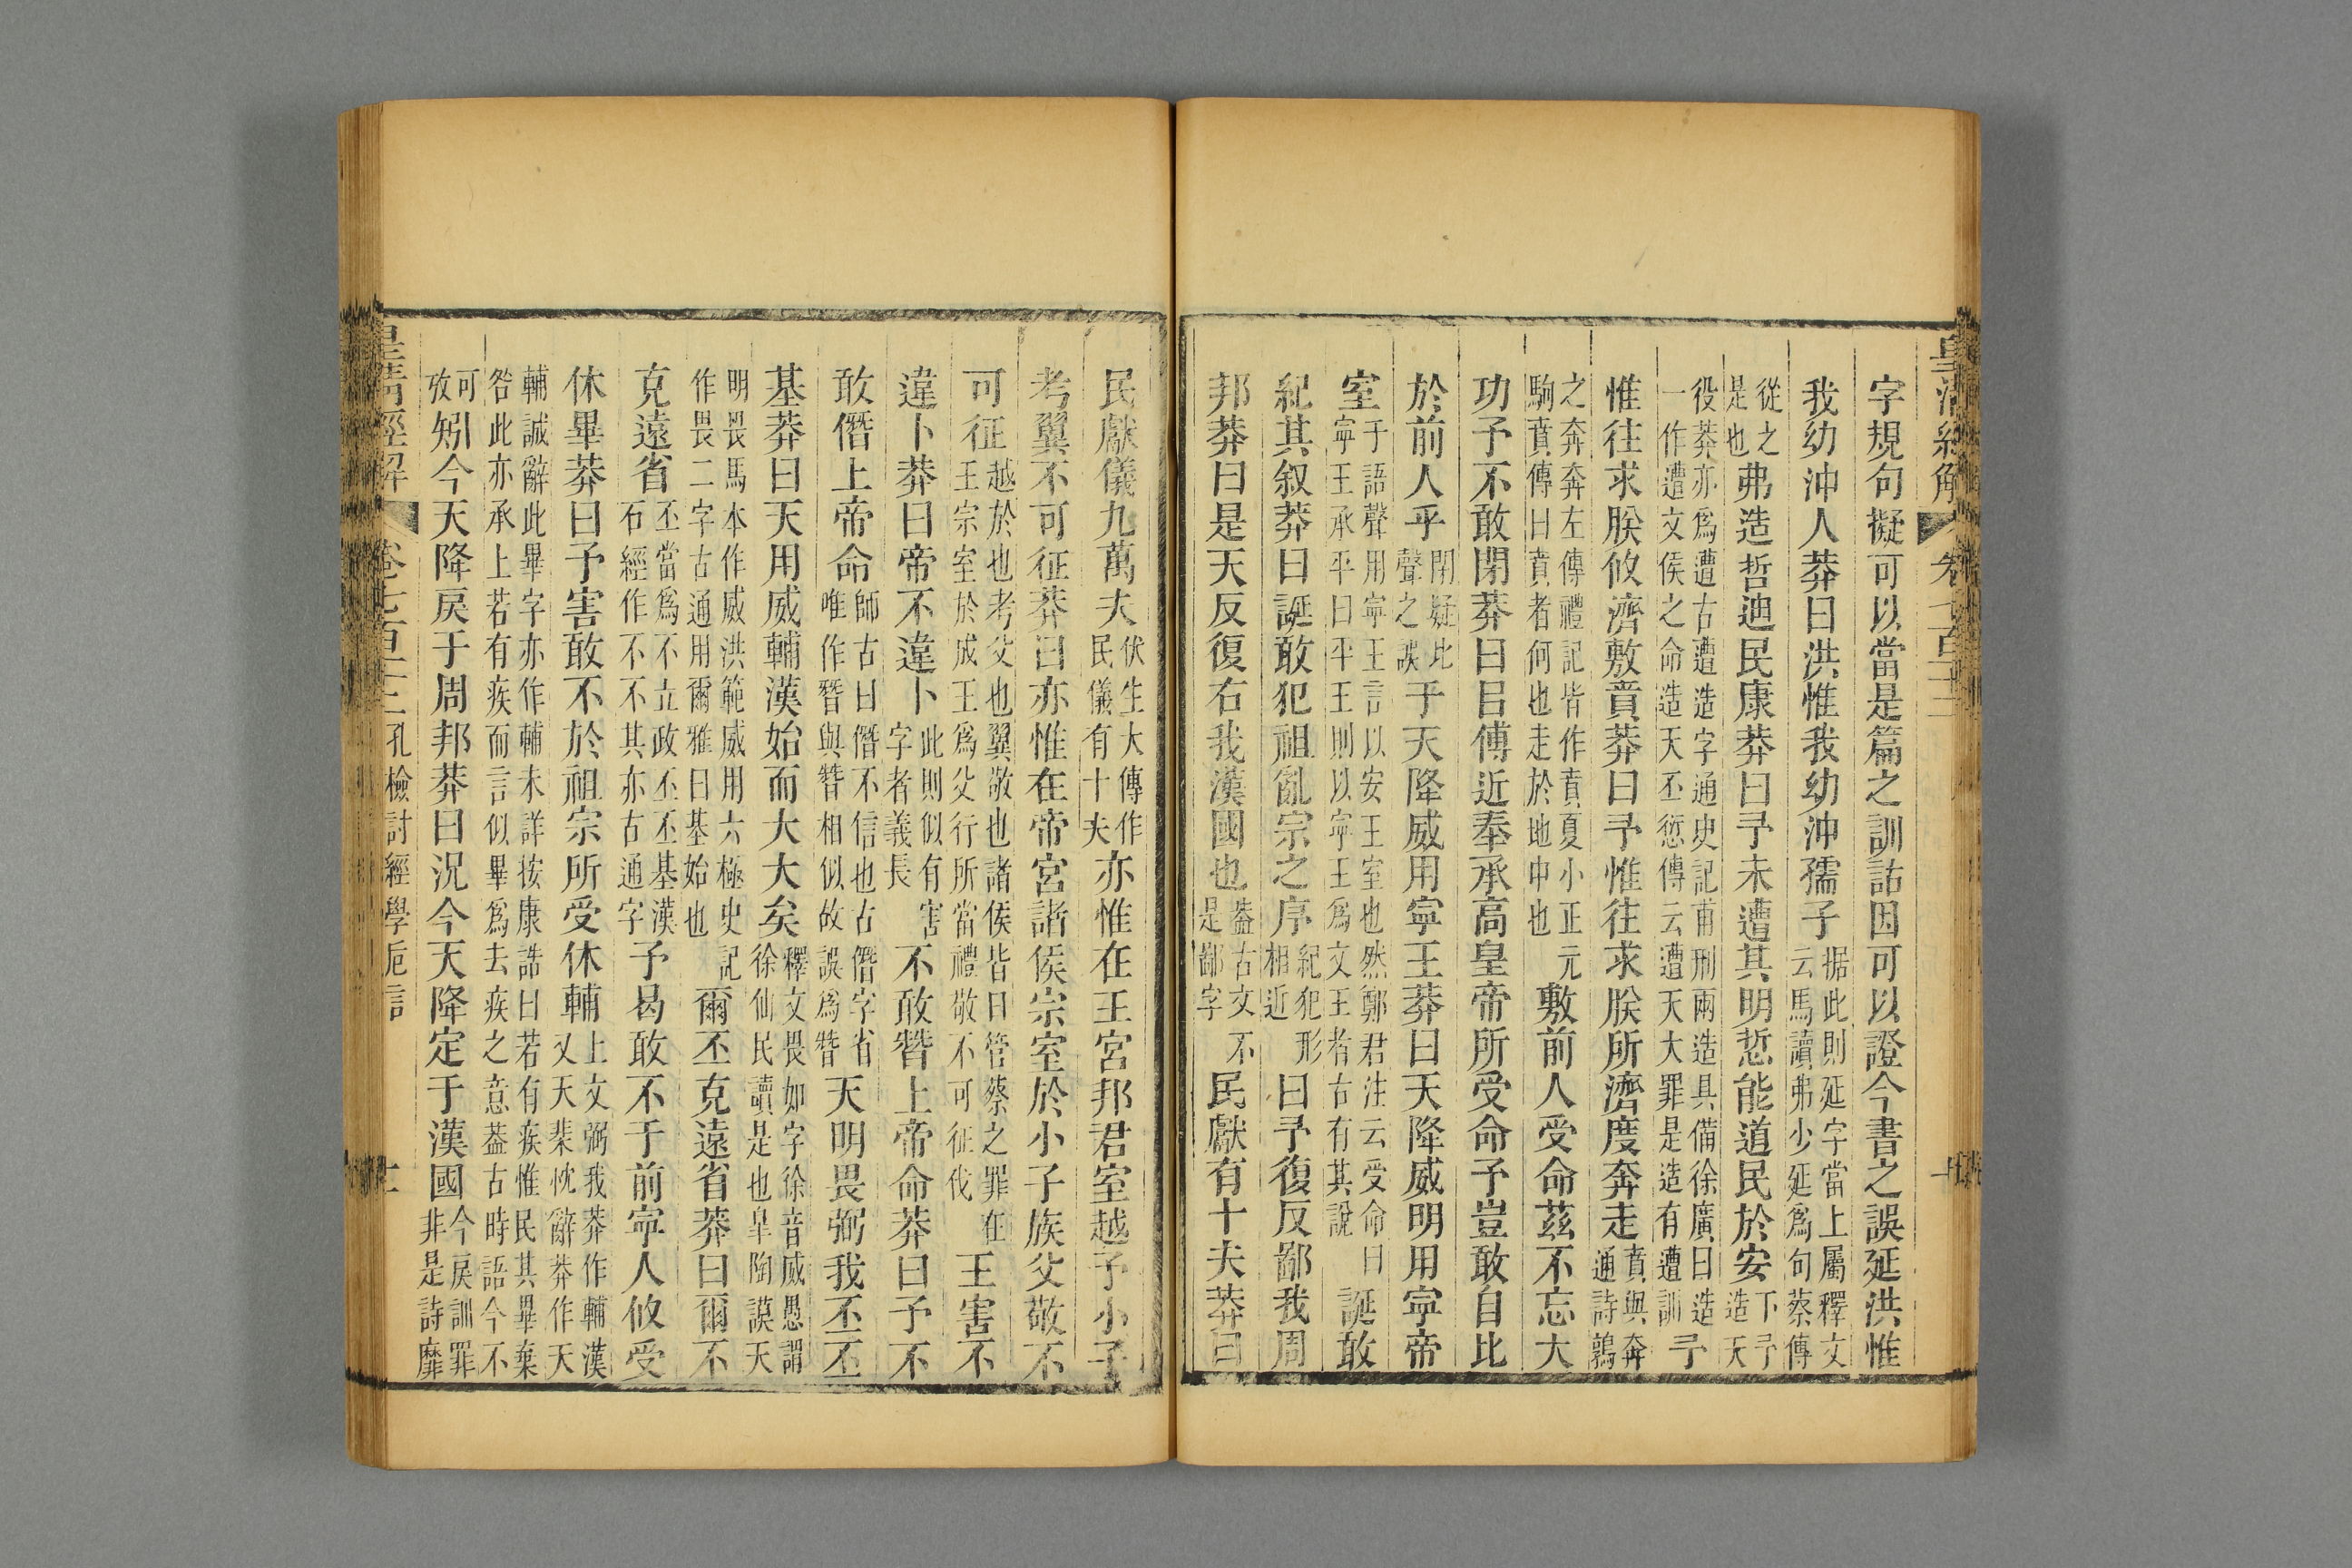 字規句擬可以當是篇之訓詁因可以證今書之誤延洪惟
我幼沖人莽曰洪惟我幼沖孺子据此則延字當上屬釋文云馬讀弗少延爲句蔡傳
從之是也弗造哲迪民康莽曰予未遭其明悊能道民於安下予造天
役莽亦爲遭古遭造字通史記甫刑兩造具備徐廣曰造一作遭文侯之命造天丕愆傳云遭天大罪是造有遭訓予
惟往求朕攸濟敷賁莽曰予惟往求朕所濟度奔走賁與奔通詩鶉
之奔奔左傳禮記皆作賁夏小正元駒賁傳曰賁者何也走於地中也敷前人受命茲不忘大
功予不敢閉莽曰㠯傅近奉承高皇帝所受命予豈敢自比
於前人乎閉疑比聲之誤于天降威用寧王莽曰天降威明用寧帝
室于語聲用寧王言以安王室也然鄭君注云受命曰寧王承平曰平王則以寧王爲文王者古有其說誕敢
紀其叙莽曰誕敢犯祖亂宗之序紀犯形相近曰予復反鄙我周
邦莽曰是天反復右我漢國也葢古文不是鄙字民獻有十夫莽曰
民獻儀九萬夫伏生大傳作民儀有十夫亦惟在王宮邦君室越予小子
考翼不可征莽曰亦惟在帝宮諸侯宗室於小子族父敬不
可征越於也考父也翼敬也諸侯皆曰管蔡之罪在王宗室於成王爲父行所當禮敬不可征伐王害不
違卜莽曰帝不違卜此則似有害字者義長不敢朁上帝命莽曰予不
敢僭上帝命師古曰僭不信也古僭字省唯作朁與朁相似故誤爲朁天明畏弼我丕丕
基莽曰天用威輔漢始而大大矣釋文畏如字徐音威愚謂徐仙民讀是也皐陶謨天
明畏馬本作威洪範威用六極史記作畏二字古通用爾雅曰基始也爾丕克遠省莽曰爾不
克遠省丕當爲不立政丕丕基漢石經作不不其亦古通字予曷敢不于前寧人攸受
休畢莽曰予害敢不於祖宗所受休輔上文弼我莽作輔漢又天棐忱辭莽作天
輔誠辭此畢字亦作輔未詳按康誥曰若有疾惟民其畢棄咎此亦承上若有疾而言似畢爲去疾之意葢古時語今不
可攷矧今天降戾于周邦莽曰況今天降定于漢國今戾訓罪非是詩靡
皇清經解
卷七百十三
孔檢討經學卮言